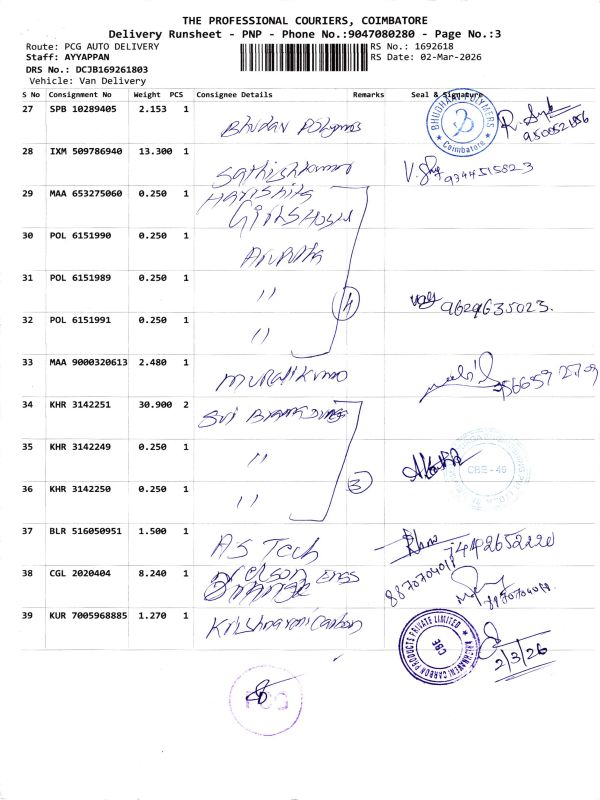 THE PROFESSIONAL COURIERS, COIMBATORE
Delivery Runsheet - PNP - Phone No.:9047080280 - Page No.:3
Route: PCG AUTO DELIVERY
RS No.: 1692618
Staff: AYYAPPAN
RS Date: 02-Mar-2026
DRS No.: DCJB169261803
Vehicle: Van Delivery
S No Consignment No Weight PCS Consignee Details Remarks Seal & Signature
27 SPB 10289405 2.153 1 Bhudav Polymos
BHUDHAAV POLYMERS
Coimbatore
28 IXM 509786940 13.300 1 Sathishkumar 9344515823
29 MAA 653275060 0.250 1 Harishita
Girls Hostel
30 POL 6151990 0.250 1
31 POL 6151989 0.250 1 " 4 9629635023.
32 POL 6151991 0.250 1 "
33 MAA 9000320613 2.480 1 Muralikumar
34 KHR 3142251 30.900 2 Sri
35 KHR 3142249 0.250 1 "
CBE - 46
36 KHR 3142250 0.250 1 " 3
37 BLR 516050951 1.500 1 AS Tech
38 CGL 2020404 8.240 1 8870704019
39 KUR 7005968885 1.270 1 Krishnaveni Carbon
KRISHNAVENI CARBON PRODUCTS PRIVATE LIMITED
CBE
2/3/26
PCG